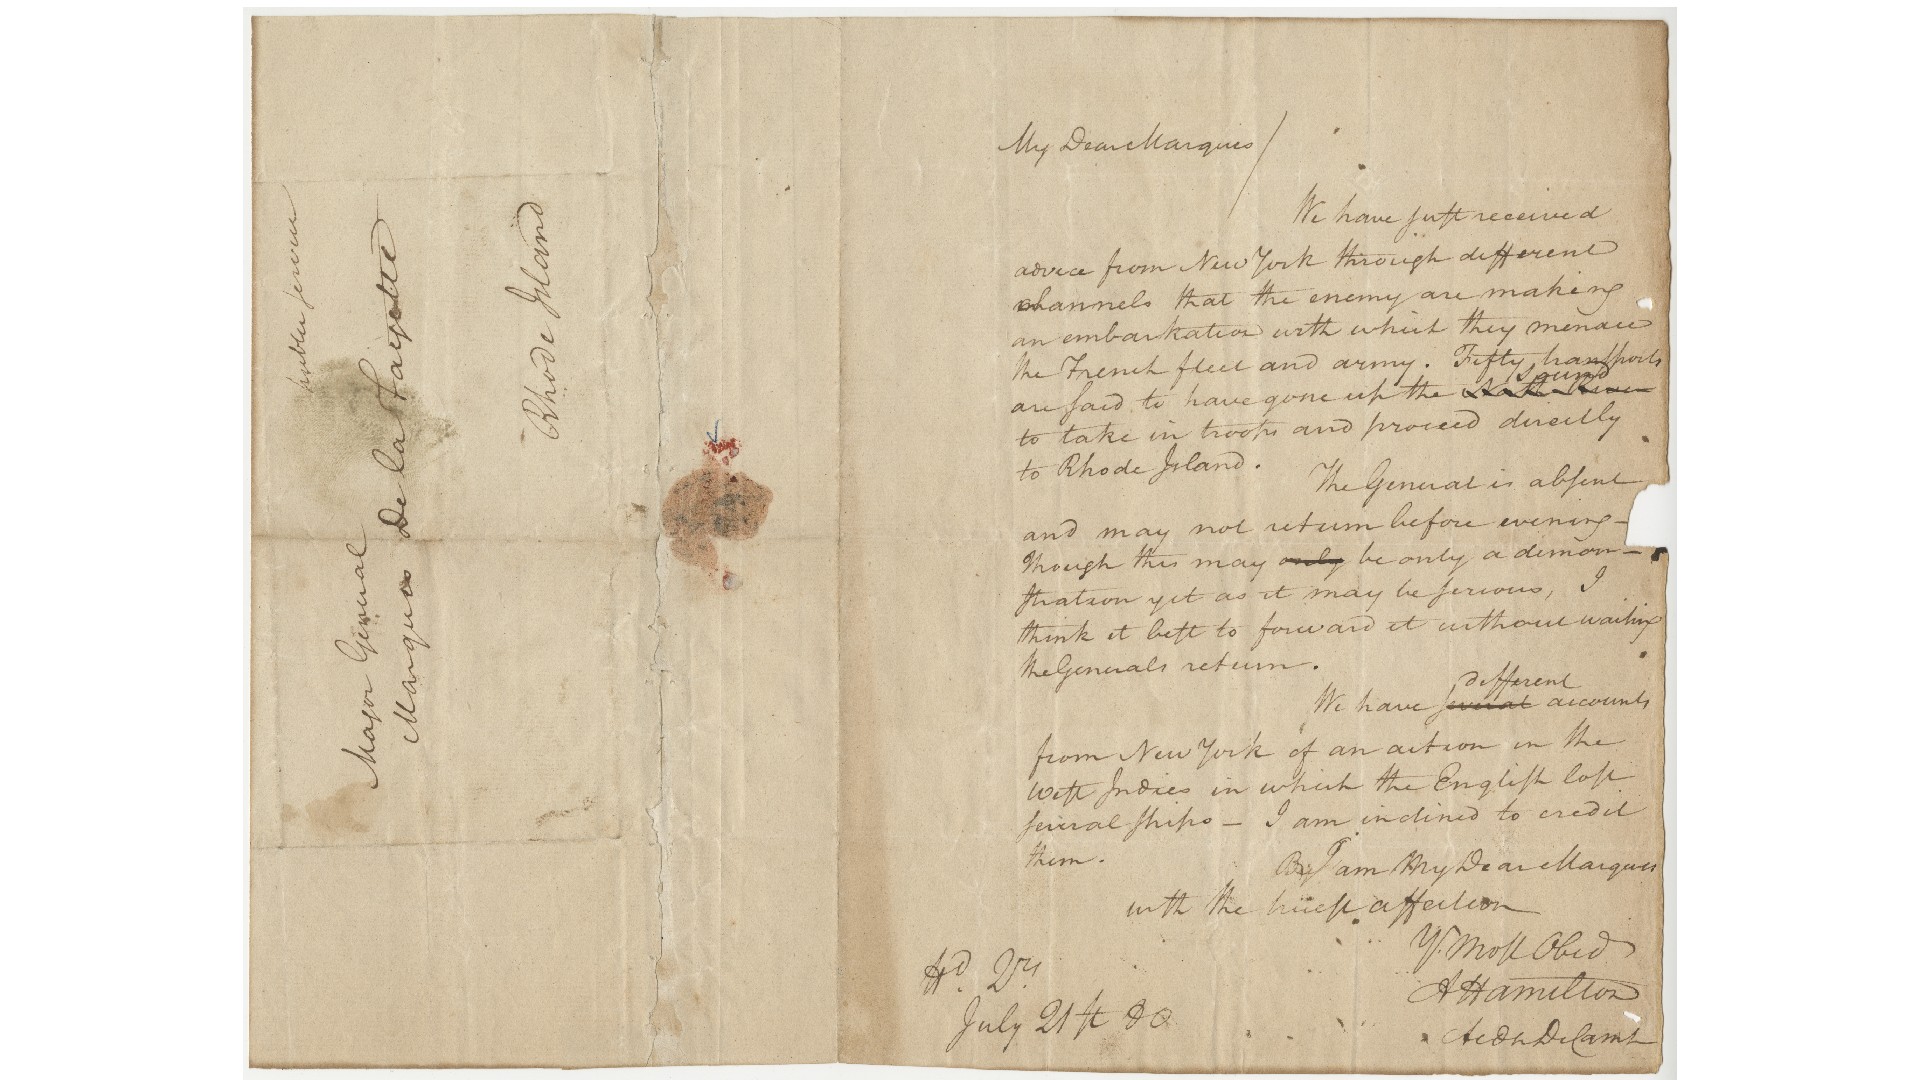 My Dear Marquis /
We have just received
advice from New York through different
channels that the enemy are making
an embarkation with which they menace
the French fleet and army. Fifty transports
are said to have gone up the ~~North River~~ Sound
to take in troops and proceed directly
to Rhode Island.
The General is absent
and may not return before evening –
Though this may ~~only~~ be only a demon–
stration yet as it may be serious, I
think it best to forward it without waiting
the Generals return.
We have ~~several~~ different accounts
from New York of an action in the
West Indies in which the English lost
several ships – I am inclined to credit
them.
I am My Dear Marquis
with the truest affection
Yr. Most Obed
A Hamilton
Aide De Camp
Hd. Qrs.
July 21st 80
Major General
Marquis De la Fayette
Rhode Island